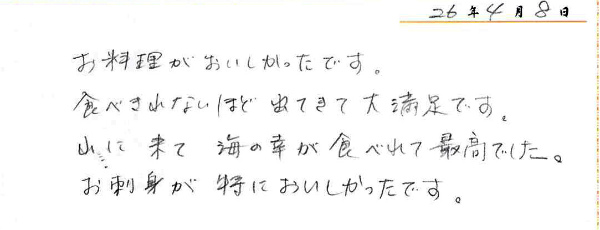 26年4月8日
お料理がおいしかったです。
食べきれないほど出てきて大満足です。
山に来て海の幸が食べれて最高でした。
お刺身が特においしかったです。